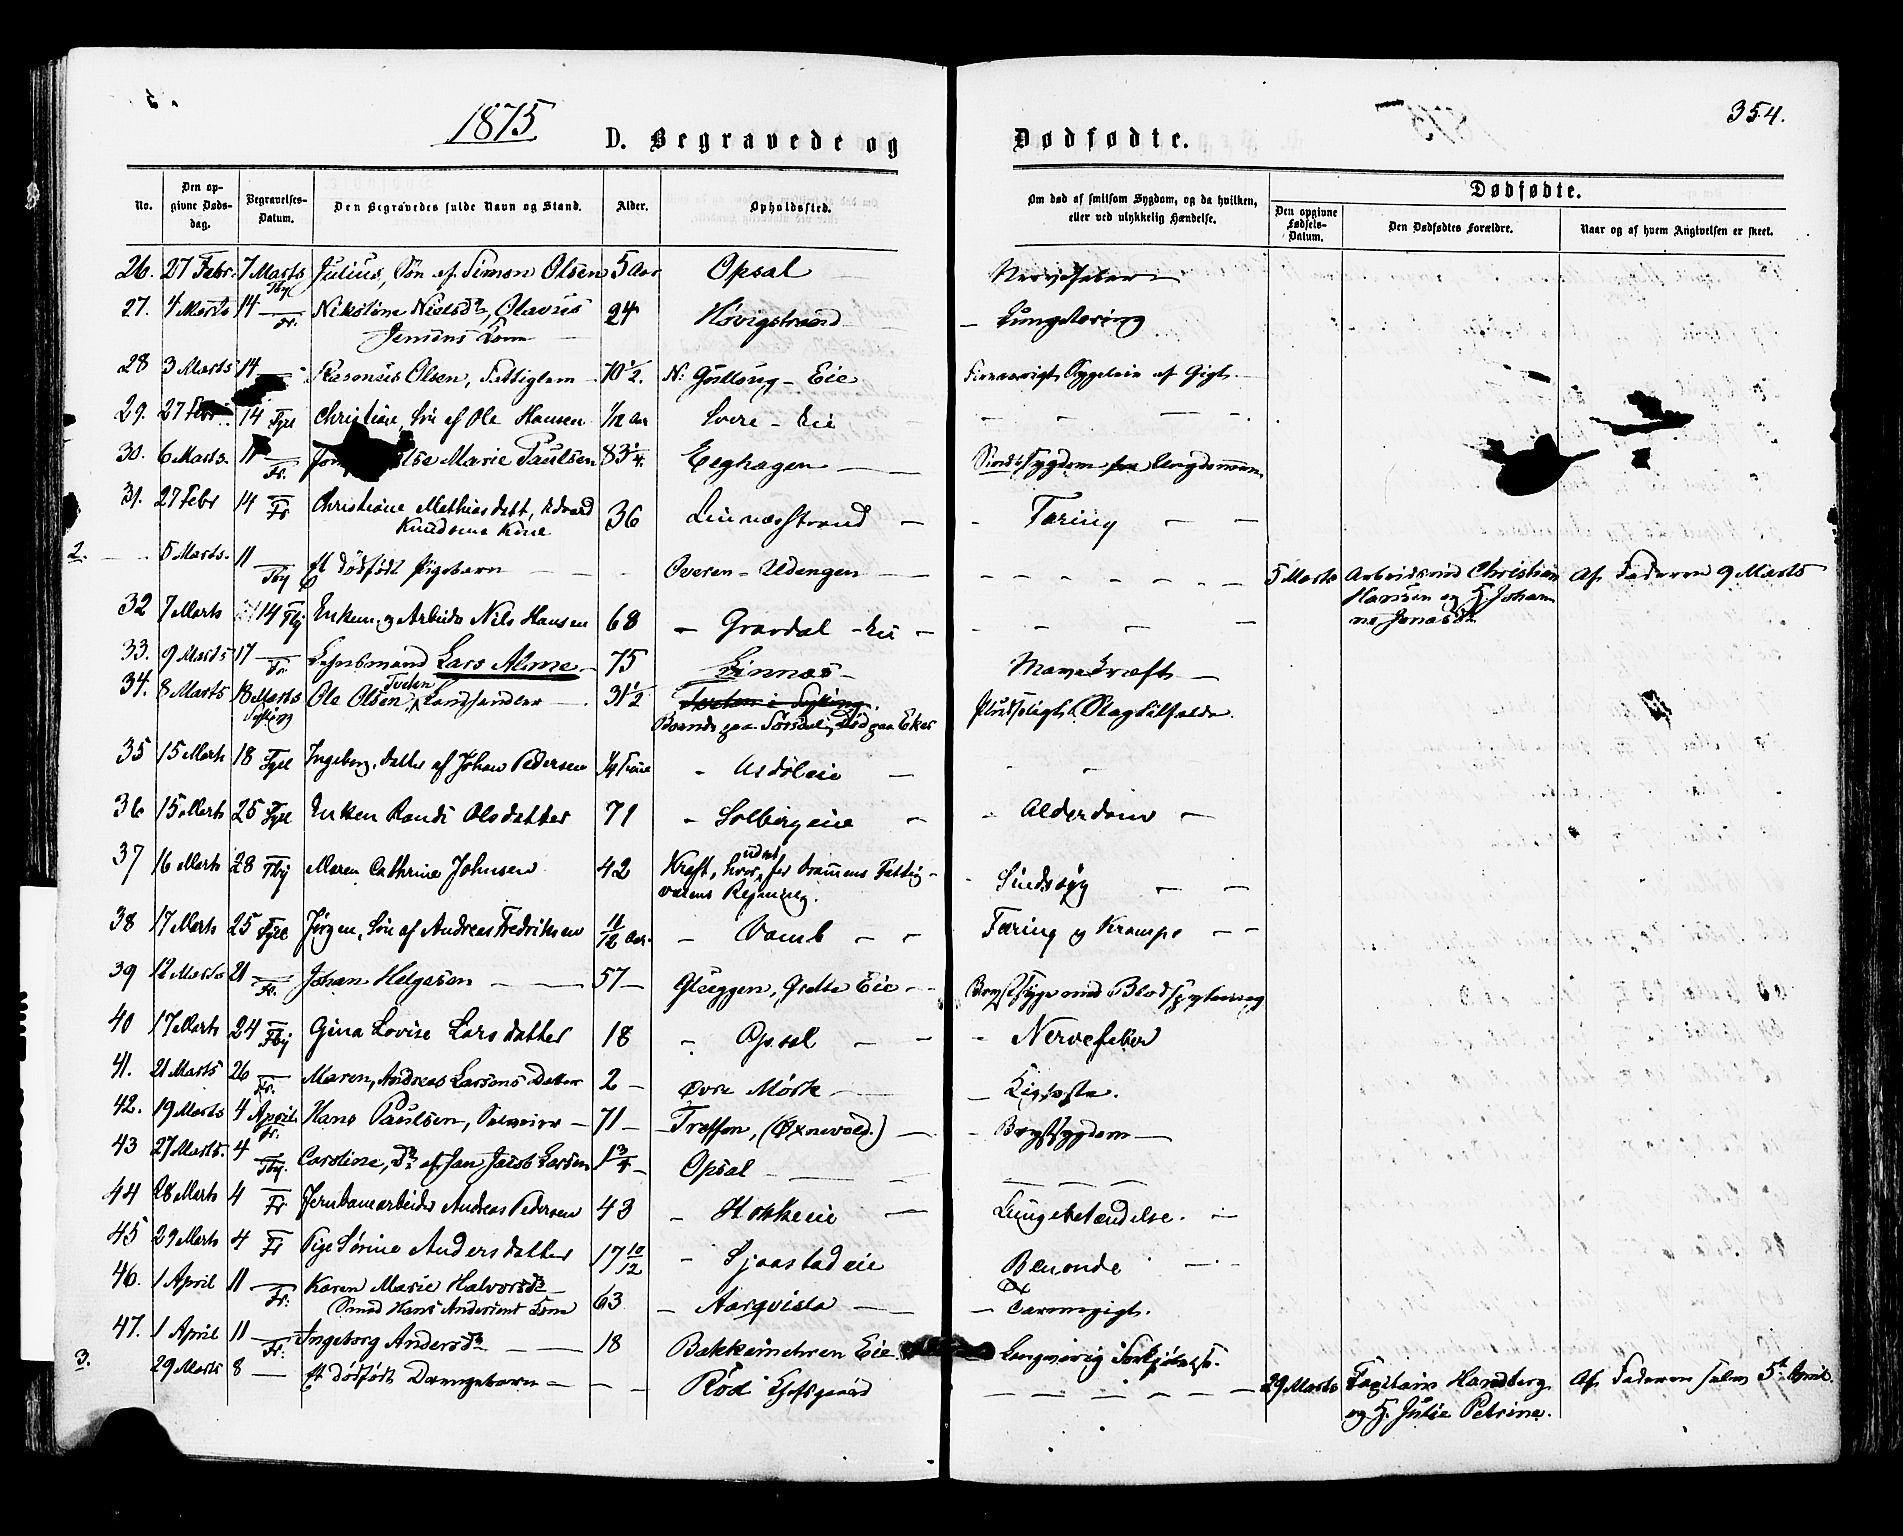 1875
354.
D. Begravede og Dødfødte.
No. Den opgivne Dødsdag. Begravelses-Datum. Den Begravedes fulde Navn og Stand. Alder. Opholdssted. Om død af smitsom Sygdom, og da hvilken, eller ved ulykkelig Hændelse. Dødfødte.
Den opgivne Fødsels-Datum. Den Dødfødtes Forældre. Naar og af hvem Angivelsen er skeet.
26. 27 Febr. 7 Marts Julius, Søn af Simon Olsen 5 Aar Opsal Nervefeber
Tby
27. 4 Marts 14 — Nikoline Nielsdtr, Olavus 24 Høvigstrand — Lungetæring
Fr.
Jensens Kone
28 3 Marts 14 — Rasmus Olsen, Fattiglem 70 1/2. N: Gullaug - Eie Sygeleie af Gigt.
29. 27 Febr 14 Fjel Christian, Søn af Ole Hansen 1/12 Aar Svere - Eie — — — —
30. 6 Marts. 11 — Else Marie Paulsen 83 1/4. Eeghagen — Sinds Sygdom fra Ungdommen
Fr.
31. 27 Febr 14 Fr Christiane Mathiasdatt, Edvard 36 Linnæsstrand — - Tæring — —
Knudsens Kone
2. — 5 Marts. 11 — Tby Et dødfødt Pigebarn — — Overen - Udengen — — — — — 5 Marts Arbeidsmd Christian Af Faderen 9 Marts
Hansen og H. Johan
ne Jonasdtr
32 7 Marts 14 Tby Enkem. og Arbeider Nils Hansen 68 - Gravdal - Eie — - — — —
33. 9 Marts 17 — Fr. Lensmand Lars Alme — 75 Linnæs — Mavekræft —
34. 8 Marts 18 Marts Ole Olsen Tveten, Landhandler — 31 1/2 Tveten i Sylling.
Sylling
Boende paa Død paa Eker Pludseligt Slagtilfælde.
35 15 Marts 18 Fjel Ingeborg, datter af Johan Pedersen - — - -
36 15 Marts 25 Fjel Enken Randi Olsdatter 71 - Solbergeie — - Alderdom —
37 16 Marts 28 Tby Maren Cathrine Johnsen 42 Kraft, for Drammens Fattig- - Sindssyg — —
væsens Regning.
38 17 Marts 25 Fjel Jørgen, Søn af Andreas Fredriksen 11/12 Aar. - Vamb — — Tæring og Krampe — —
39 12 Marts 21 — Fr. Johan Helgesen — — 57 — Gluggen, Eie — Brystsyge med Blodspytning
40 17 Marts 24 Tby Gina Lovise Larsdatter 18 - Opsal — — - Nervefeber
41. 21 Marts 26 — Fr. Maren, Andreas Larsens Datter 2 — Øvre Mørk — — Kighoste.
42. 19 Marts 4 April Hans Paulsen, — 71 — Træffen, (Øxnevold.) — - Brystsygdom —
Fr.
43 27 Marts. 4 — Tby. Caroline, Dtr af Jan Jacob Larsen 1 3/4 — Opsal — — — — —
44 28 Marts 4 Fr Jernbanearbeider Andreas Pedersen 43 - Hokkeeie — Lungebetændelse. —
45 29 Marts 4 Fr Pige Sørine Andersdatter 17 10/12 - Sjaastadeie
46. 1 April 11 — Fr. Karen Marie Halvorsdtr — 63 — Aarqvisla — —
Smed Hans Andersens Kone
47. 1 April 11 — Fr. Ingeborg Andersdtr — — 18 Bakkemehren Eie.
3. 29 Marts 8 — Et dødfødt Drengebarn — — — Rød Chefsgaard — — — — — 29 Marts Handberg Af Faderen selv 5te April.
og H. Julie Petrine.